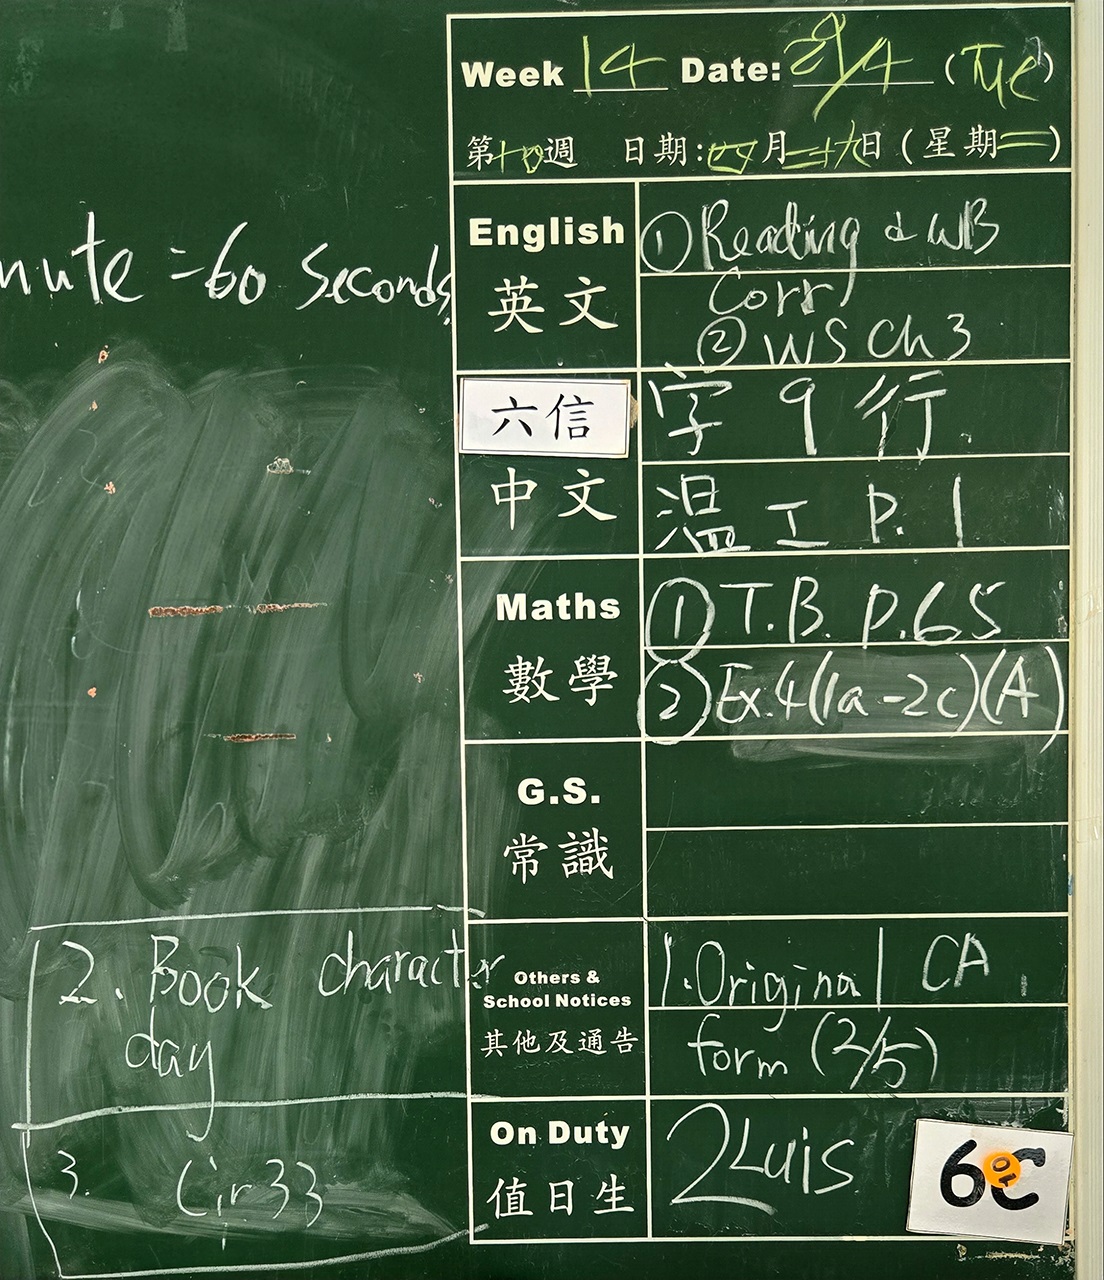 Week 14 Date: 29/4 (Tue)
第十四週 日期:四月二十九日(星期二)
nute = 60 Seconds
English
英文
① Reading & WB
Corr
② WS Ch 3
六信
中文
字 9 行
温 工 P. 1
Maths
數學
① T.B. P.65
② Ex.4(1a-2c)(A)
G.S.
常識
Others &
School Notices
其他及通告
1. Original CA
form (2/5)
2. Book character
day
3. Cir 33
On Duty
值日生
2 Luis
6C